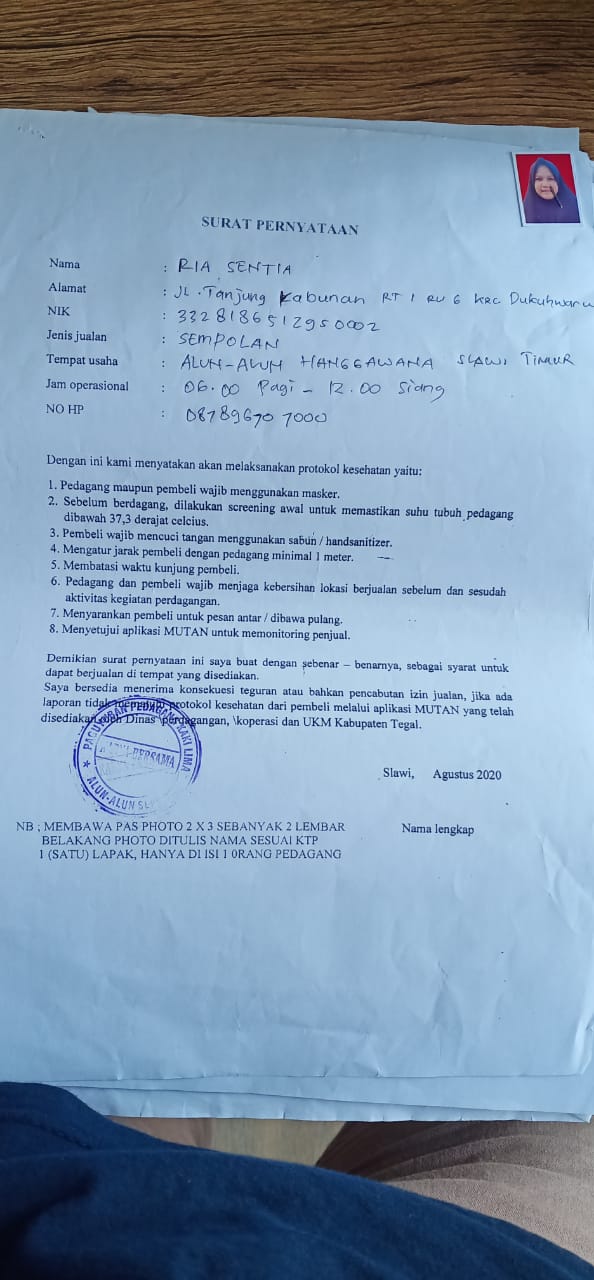 SURAT PERNYATAAN
Nama : RIA SENTIA
Alamat : JL. Tanjung Kabunan RT 1 RW 6 Kec. Dukuhwaru
NIK : 3328186512950002
Jenis jualan : SEMPOLAN
Tempat usaha : ALUN-ALUN HANGGAWANA SLAWI TIMUR
Jam operasional : 06.00 Pagi - 12.00 Siang
NO HP : 087896707000
Dengan ini kami menyatakan akan melaksanakan protokol kesehatan yaitu:
1. Pedagang maupun pembeli wajib menggunakan masker.
2. Sebelum berdagang, dilakukan screening awal untuk memastikan suhu tubuh pedagang
dibawah 37,3 derajat celcius.
3. Pembeli wajib mencuci tangan menggunakan sabun / handsanitizer.
4. Mengatur jarak pembeli dengan pedagang minimal 1 meter.
5. Membatasi waktu kunjung pembeli.
6. Pedagang dan pembeli wajib menjaga kebersihan lokasi berjualan sebelum dan sesudah
aktivitas kegiatan perdagangan.
7. Menyarankan pembeli untuk pesan antar / dibawa pulang.
8. Menyetujui aplikasi MUTAN untuk memonitoring penjual.
Demikian surat pernyataan ini saya buat dengan sebenar – benarnya, sebagai syarat untuk
dapat berjualan di tempat yang disediakan.
Saya bersedia menerima konsekuesi teguran atau bahkan pencabutan izin jualan, jika ada
laporan tidak memenuhi protokol kesehatan dari pembeli melalui aplikasi MUTAN yang telah
disediakan oleh Dinas \perdagangan, \koperasi dan UKM Kabupaten Tegal.
PAGUYUBAN PEDAGANG KAKI LIMA
BERSAMA
ALUN-ALUN
Slawi, Agustus 2020
Nama lengkap
NB ; MEMBAWA PAS PHOTO 2 X 3 SEBANYAK 2 LEMBAR
BELAKANG PHOTO DITULIS NAMA SESUAI KTP
1 (SATU) LAPAK, HANYA DI ISI 1 0RANG PEDAGANG